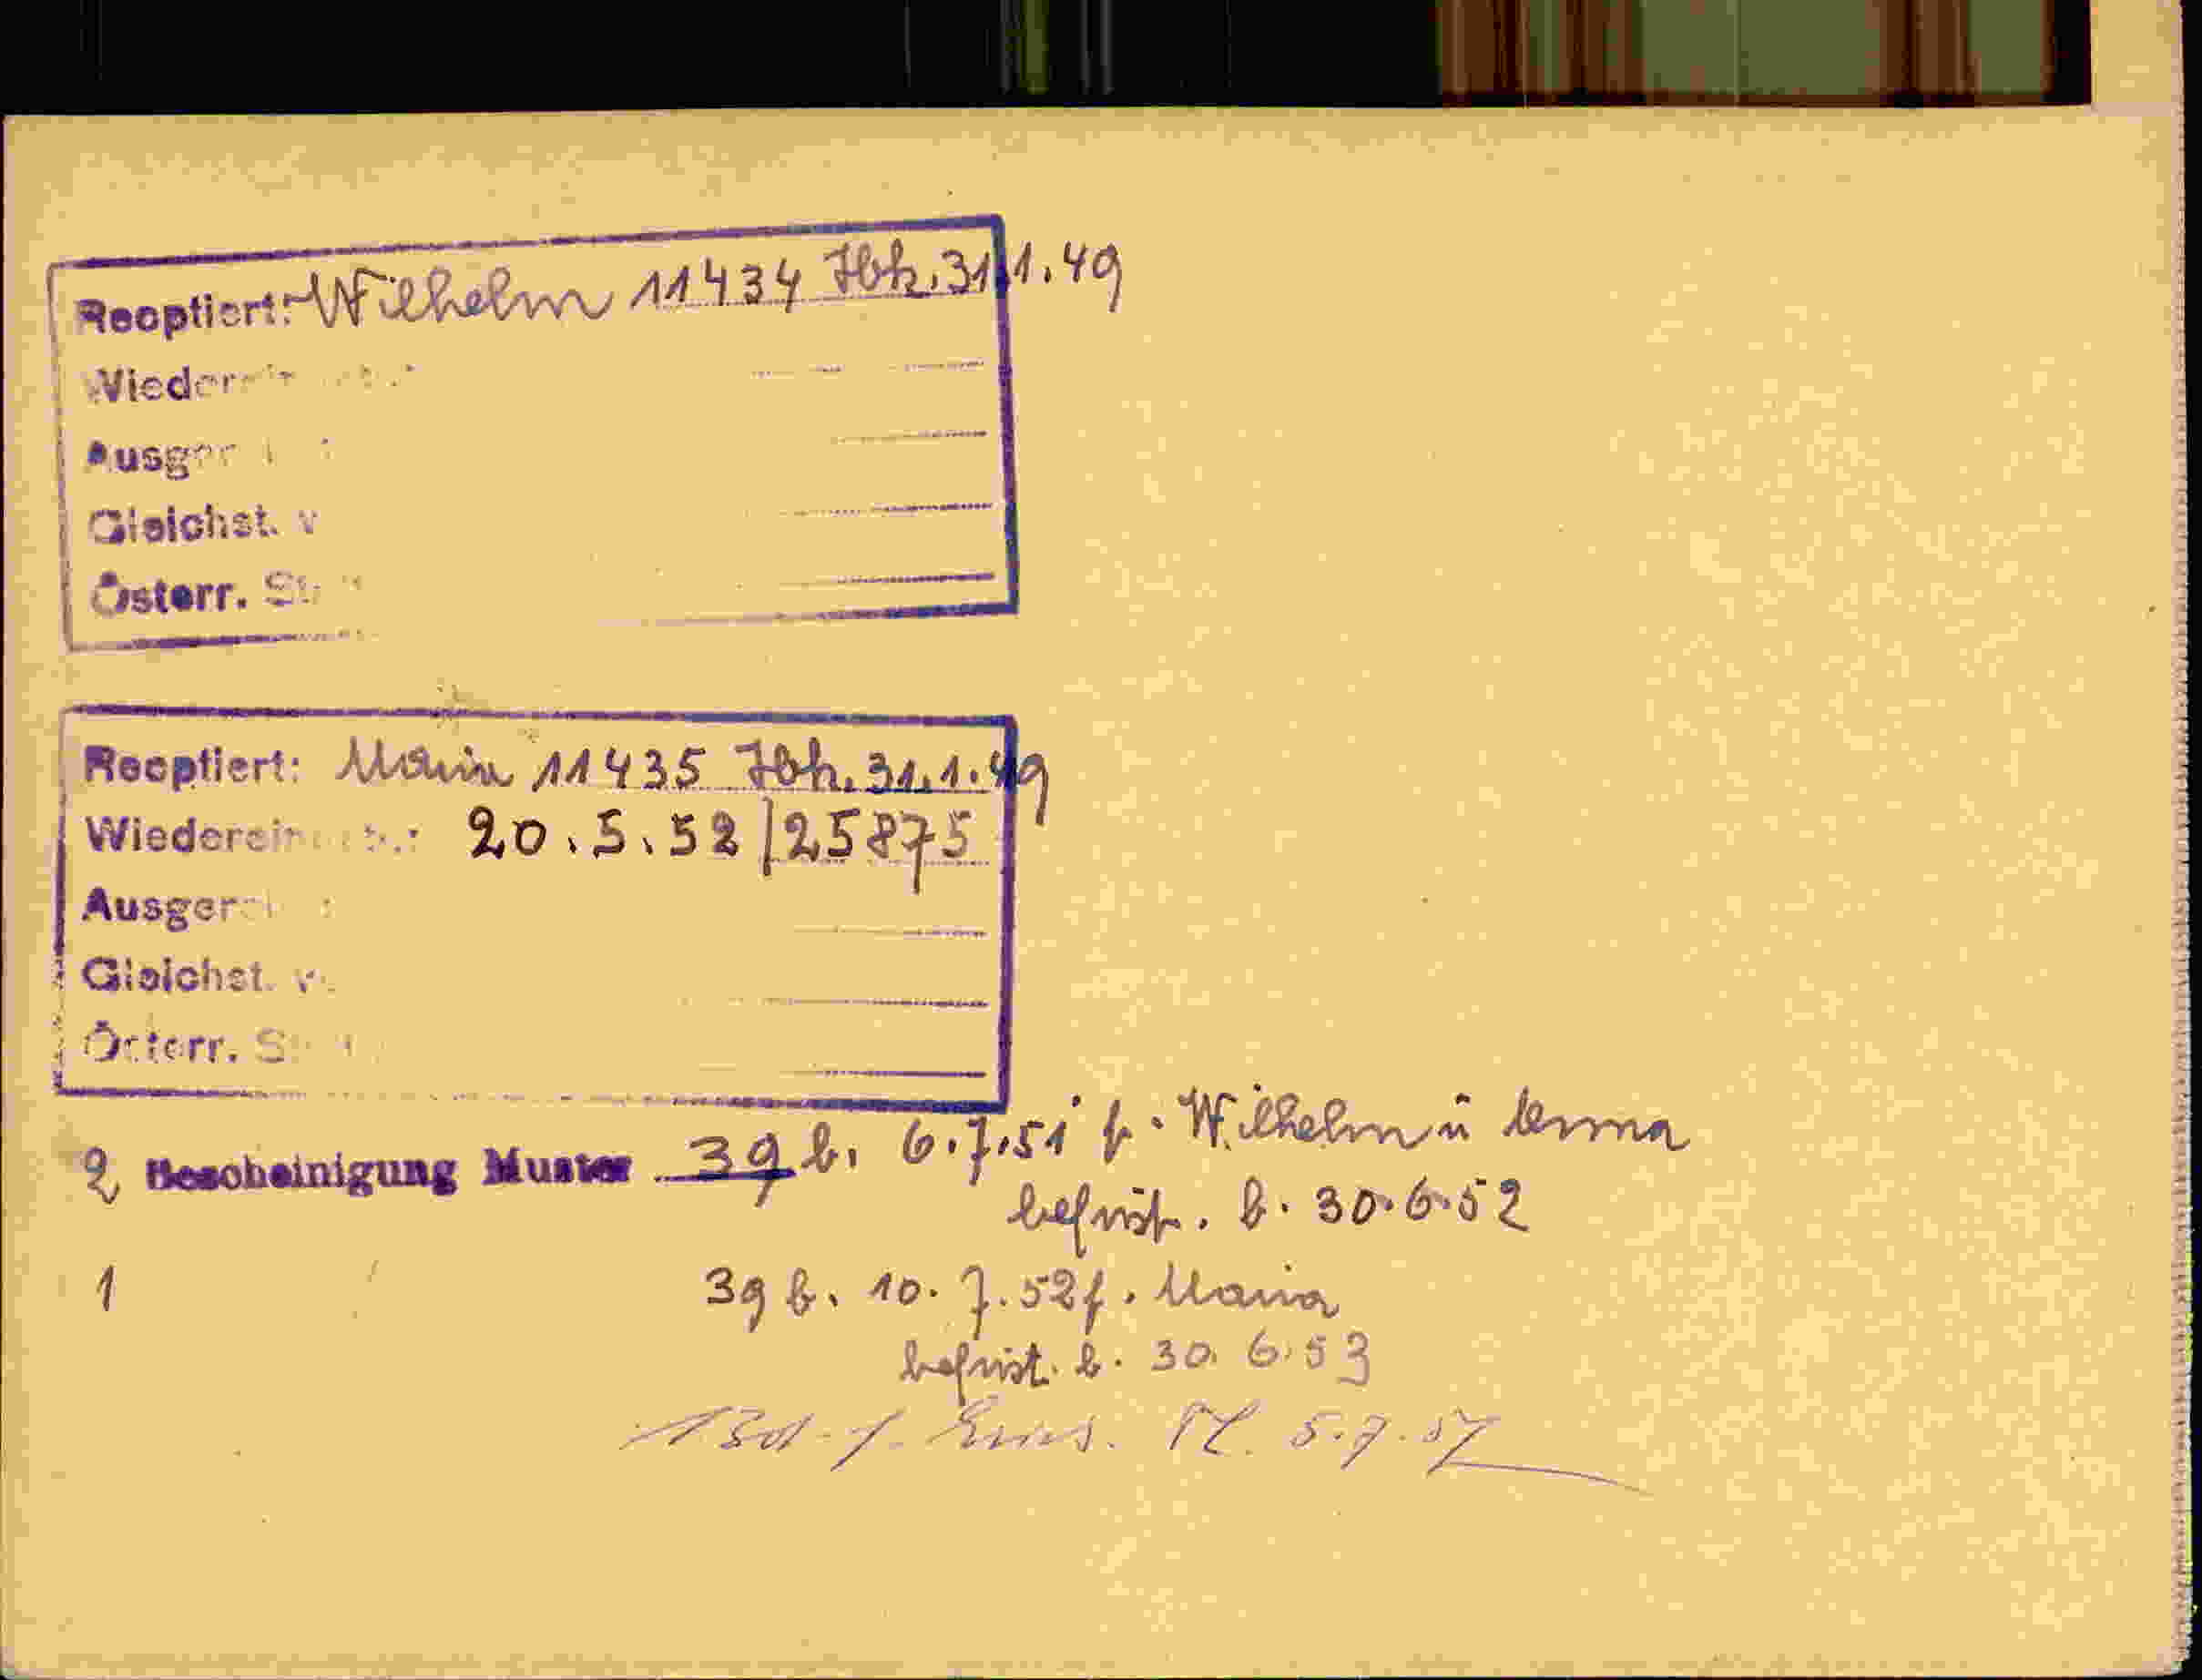 Reoptiert: Wilhelm 11434 Ibk. 31.1.49
Wieder
Ausger
Gleichst. v
Österr. St
Reoptiert: Maria 11435 Ibk. 31.1.49
Wiederein 20.5.52/25875
Ausger
Gleichst. v
Österr. S
2 Bescheinigung Muster 39 b. 6.7.51 f. Wilhelm u
befrist. b. 30.6.52
1 39 b. 10.7.52 f. Maria
befrist. b. 30.6.53
5.7.57